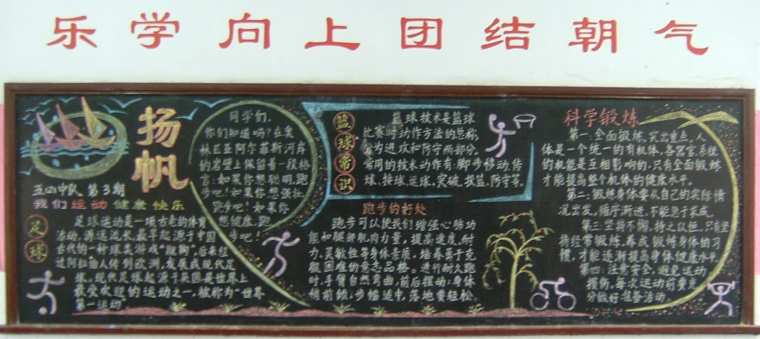 乐学向上团结朝气
扬帆
五(4)中队 第3期
我们运动 健康 快乐
足球
足球运动是一项古老的体育
活动,源远流长。最早起源于中国
古代的一种球戏
过阿拉伯人传到欧洲,发展成现代足
球。现代足球起源于英国是世界上
最受欢迎的运动之一,被称为"世界
第一运动"
同学们,
你们知道吗?在奥
林匹亚阿尔菲斯河岸
的岩壁上保留着一段格
言:如果你想聪明,跑
步吧!如果你想强壮,
跑步吧!如果你
想健康,跑
步吧!
篮球常识
篮球技术是篮球
比赛时动作方法的总称,
分为进攻和防守两部分。
常用的技术动作有:脚步移动,传
球、接球、运球、突破、投篮、防守等。
跑步的好处
跑步可以使我们增强心肺功
能和腿部肌肉力量,提高速度、耐
力、灵敏性等身体素质,培养勇于克
服困难的意志品格。进行耐久跑
时,手臂自然弯曲,前后摆动;身体
稍前倾,步幅适中,落地要轻松
科学锻炼
第一:全面锻炼,突出重点。人
体是一个统一的有机体,各器官系统
的机能是互相影响的。只有全面锻炼
才能提高整个机体的健康水平。
第二:锻炼身体要从自己的实际情
况出发,循序渐进,不能急于求成。
第三:坚持不懈,持之以恒。只有坚
持经常锻炼,养成锻炼身体的习
惯,才能逐渐提高身体健康水平。
第四:注意安全,避免运动
损伤,每次运动前要充
分做好准备活动。